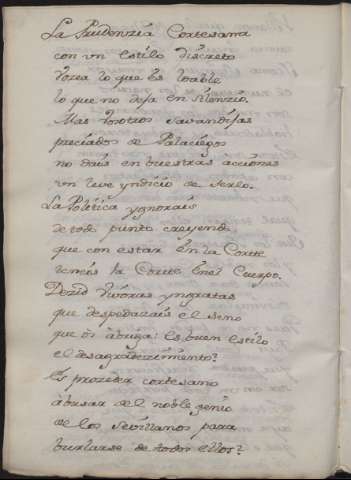 La Prudenzia Cortesana
con vn estilo discreto
dozea lo que es loable
lo que no deja en silenzio.
Mas vosotros savandijas
preciados de Palaciegos
no dais en buestras acciones
vn leve yndicio de serlo.
La Politica ygnorais
de todo punto creyendo
que con estar en la Corte
teneis la Corte en el Cuerpo.
Dezid viboras yngratas
que despedazais el seno
que os abriga: es buen estilo
el desagradecimiento?
Es proceder cortesano
abusar del noble genio
de los sevillanos para
burlarse de todos ellos?